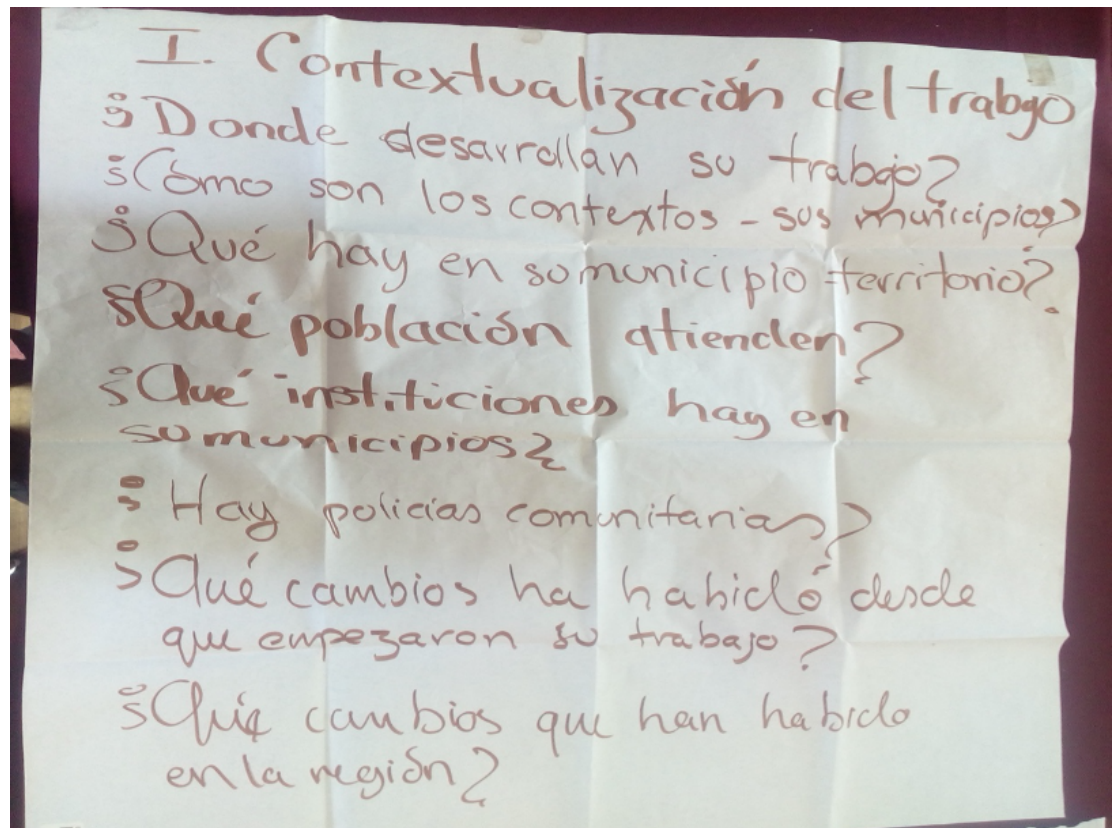 I. Contextualización del trabajo
¿Donde desarrollan su trabajo?
¿Cómo son los contextos - sus municipios?
¿Qué hay en su municipio - territorio?
¿Qué población atienden?
¿Qué instituciones hay en
su municipios?
¿Hay policias comunitarias?
¿Qué cambios ha habidó desde
que empezaron su trabajo?
¿Qué cambios que han habido
en la región?